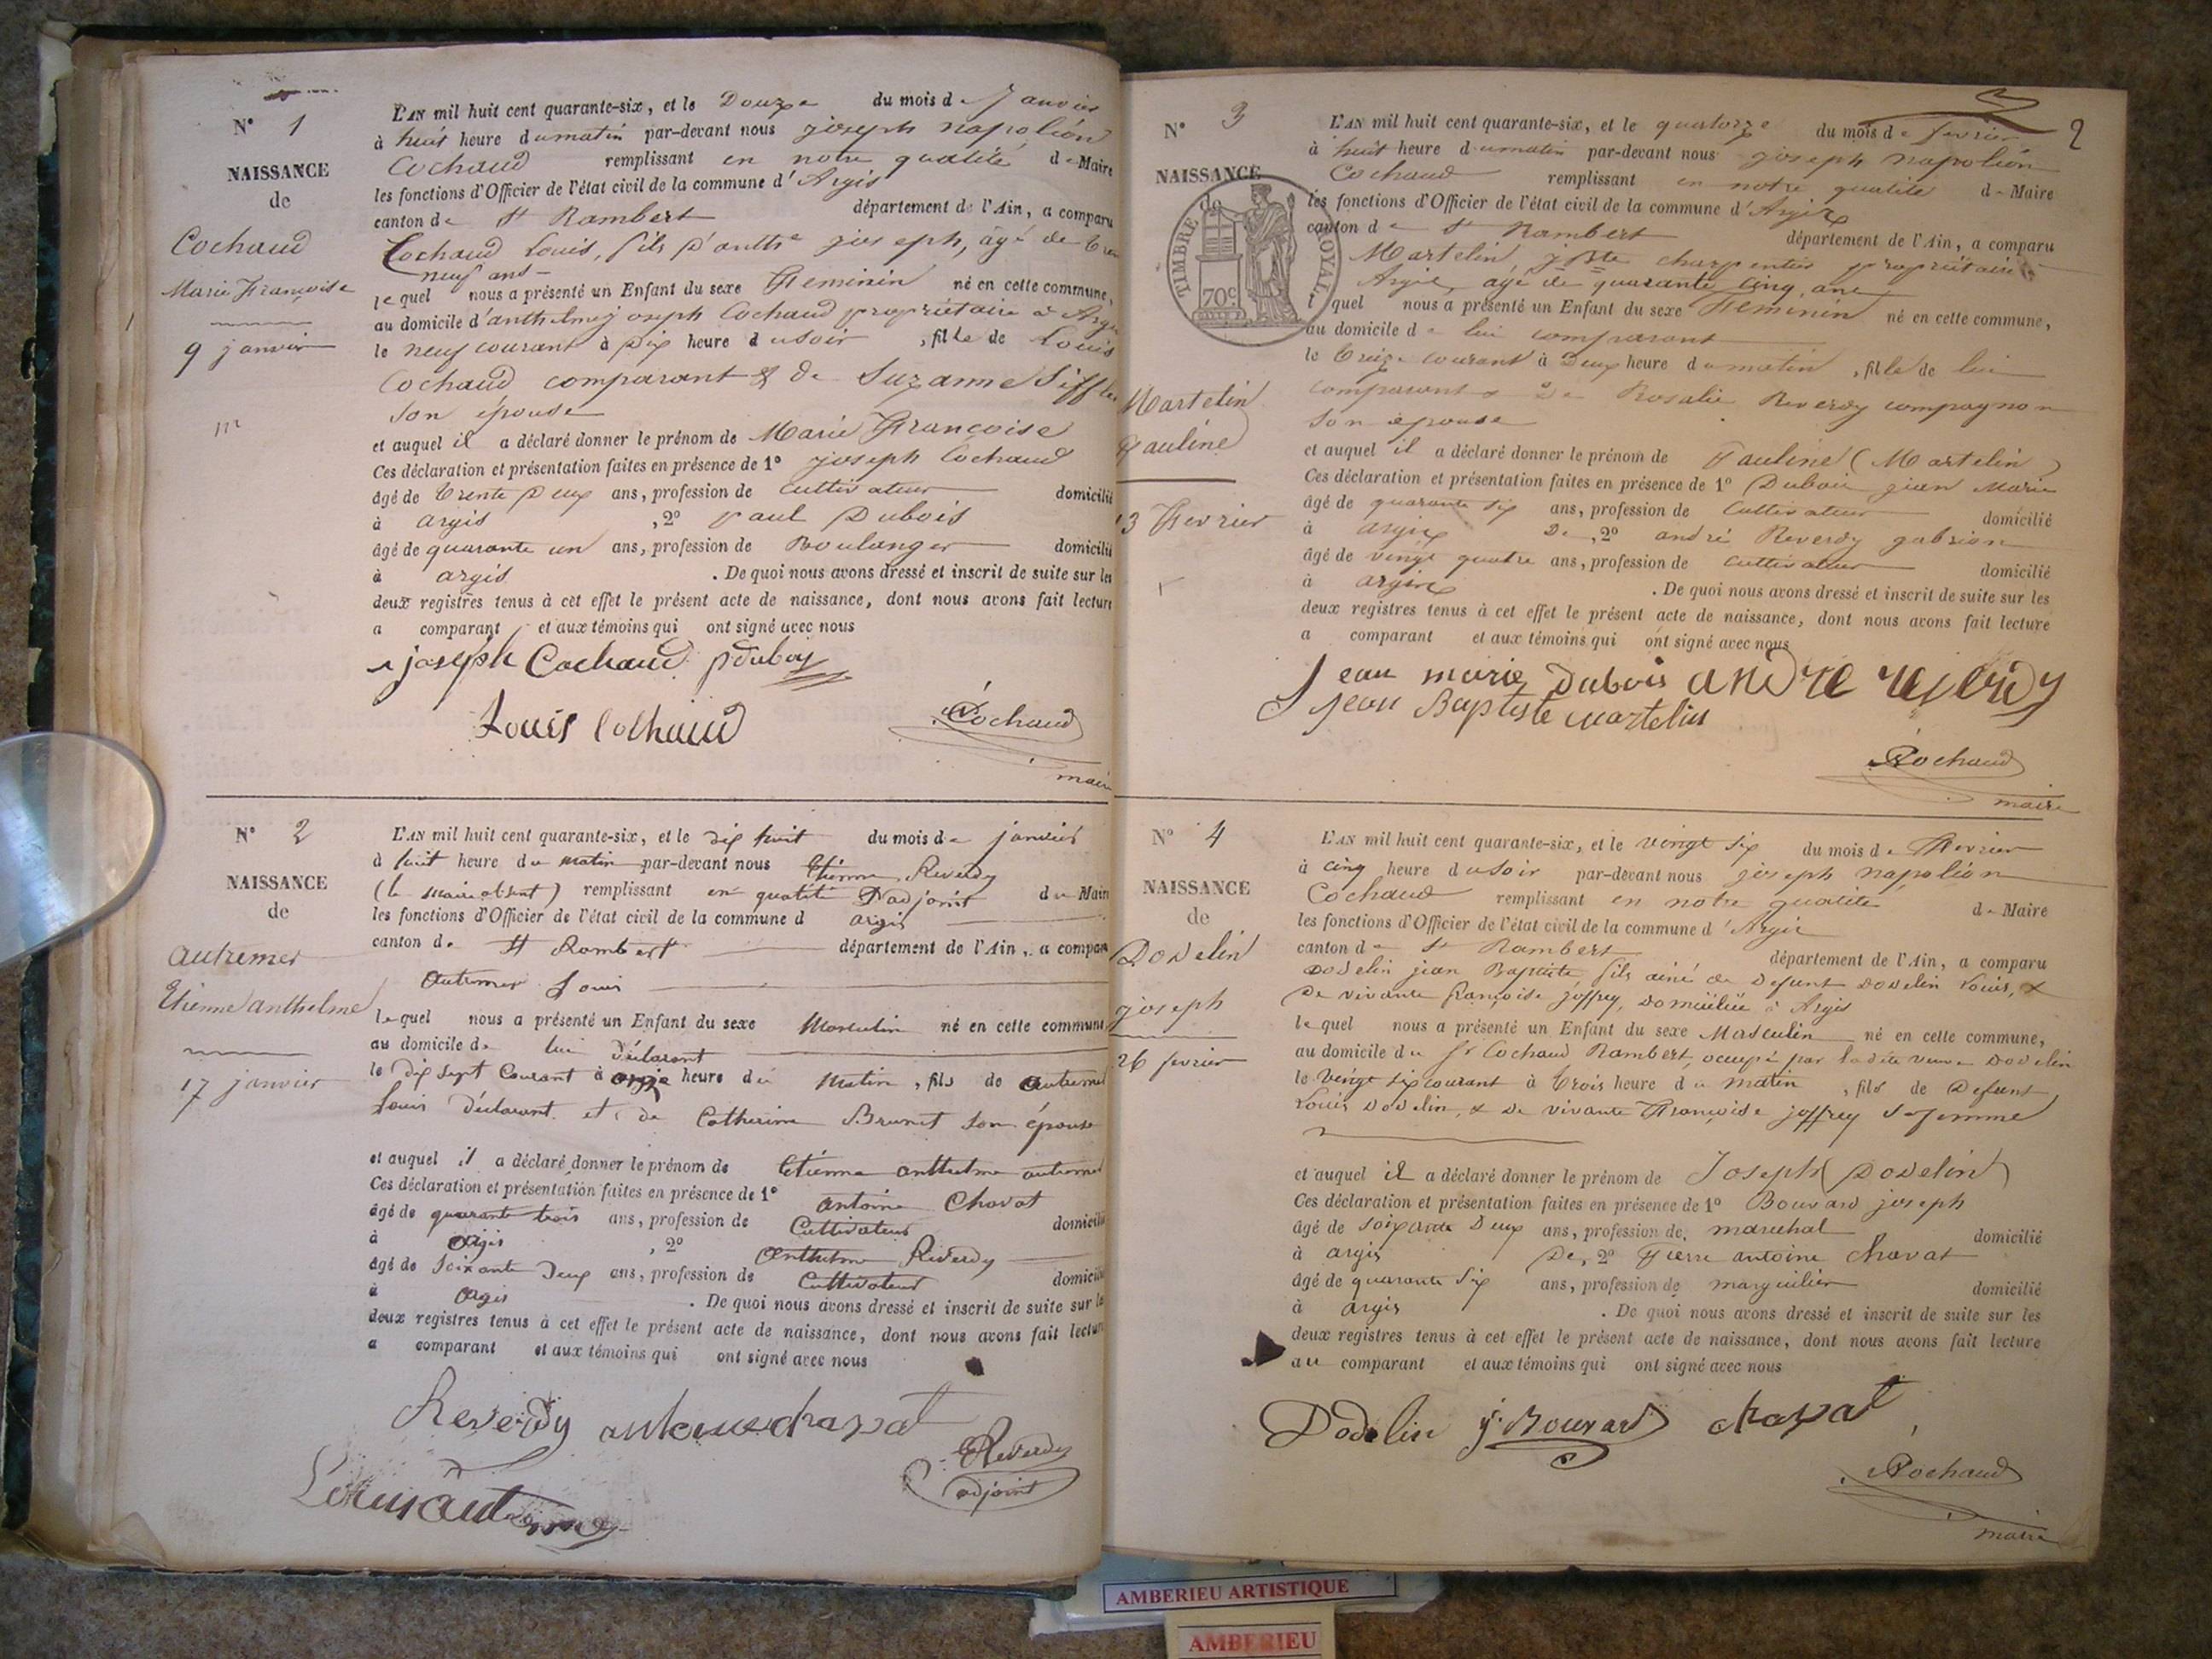 N° 1
NAISSANCE
de
Cochaud
Marie Françoise
9 janvier
L'AN mil huit cent quarante-six, et le Douze du mois de Janvier
à huit heure du matin par-devant nous joseph napoléon
Cochaud remplissant en notre qualité de Maire
les fonctions d'Officier de l'état civil de la commune d'Argis
canton de St Rambert département de l'Ain, a comparu
Cochaud Louis, fils d'anthe joseph, âgé de
neuf ans
lequel nous a présenté un Enfant du sexe Feminin né en cette commune,
au domicile d'anthelme joseph Cochaud propriétaire à
le neuf courant à Dix heure du soir, fille de Louis
Cochaud comparant & de Suzanne
son épouse
et auquel il a déclaré donner le prénom de Marie Françoise
Ces déclaration et présentation faites en présence de 1° joseph Cochaud
âgé de trente Deux ans, profession de Cultivateur domicilié
à argis, 2° Paul Dubois
âgé de quarante un ans, profession de Boulanger domicilié
à argis. De quoi nous avons dressé et inscrit de suite sur les
deux registres tenus à cet effet le présent acte de naissance, dont nous avons fait lecture
a comparant et aux témoins qui ont signé avec nous
joseph Cochaud pdubois
Louis Cochaud
Cochaud
maire
N° 2
NAISSANCE
de
Autremer
Etienne anthelme
17 janvier
L'AN mil huit cent quarante-six, et le dix huit du mois de janvier
à huit heure du matin par-devant nous Etienne Reverdy
(le maire absent) remplissant en qualité D'adjoint du Maire
les fonctions d'Officier de l'état civil de la commune d argis
canton de St Rambert département de l'Ain, a comparu
Autremer Louis
lequel nous a présenté un Enfant du sexe Masculin né en cette commune
au domicile de lui déclarant
le Dix sept Courant à onze heure du Matin, fils de Autremer
Louis déclarant et de Catherine Brunet son épouse
et auquel il a déclaré donner le prénom de Etienne anthelme autremer
Ces déclaration et présentation faites en présence de 1° antoine Chavat
âgé de quarante trois ans, profession de Cultivateur domicilié
à argis, 2° Anthelme Reverdy
âgé de Soixante Deux ans, profession de Cultivateur domicilié
à argis. De quoi nous avons dressé et inscrit de suite sur les
deux registres tenus à cet effet le présent acte de naissance, dont nous avons fait lecture
a comparant et aux témoins qui ont signé avec nous
Reverdy antoine chavat
Reverdy
adjoint
2
N° 3
NAISSANCE
de
TIMBRE ROYAL
70c
Martelin
Pauline
13 Fevrier
L'AN mil huit cent quarante-six, et le quatorze du mois de fevrier
à huit heure du matin par-devant nous joseph napoléon
Cochaud remplissant en notre qualité de Maire
les fonctions d'Officier de l'état civil de la commune d'Argis
canton de St Rambert département de l'Ain, a comparu
Martelin jn Bte charpentier propriétaire à
Argis, âgé de quarante cinq ans
lequel nous a présenté un Enfant du sexe Feminin né en cette commune,
au domicile de lui comparant
le treize courant à Deux heure du matin, fille de lui
comparant & De Rosalie Reverdy compagnon
son épouse
et auquel il a déclaré donner le prénom de Pauline (Martelin)
Ces déclaration et présentation faites en présence de 1° Dubois jean Marie
âgé de quarante six ans, profession de Cultivateur domicilié
à argis De, 2° andré Reverdy gabrion
âgé de vingt quatre ans, profession de cultivateur domicilié
à argis. De quoi nous avons dressé et inscrit de suite sur les
deux registres tenus à cet effet le présent acte de naissance, dont nous avons fait lecture
a comparant et aux témoins qui ont signé avec nous
Jean marie Dubois andre reverdy
jean Baptiste martelin
Cochaud
maire
N° 4
NAISSANCE
de
Dodelin
joseph
26 fevrier
L'AN mil huit cent quarante-six, et le vingt six du mois de Fevrier
à cinq heure du soir par-devant nous joseph napoléon
Cochaud remplissant en notre qualité de Maire
les fonctions d'Officier de l'état civil de la commune d'Argis
canton de St Rambert département de l'Ain, a comparu
Dodelin jean Baptiste, fils ainé de Defunt Dodelin Louis, &
De vivante françoise joffrey, Domiciliée à Argis
lequel nous a présenté un Enfant du sexe Masculin né en cette commune,
au domicile du Sr Cochaud Rambert, occupé par ladite veuve Dodelin
le vingt six courant à trois heure du matin, fils de Defunt
Louis Dodelin, & De vivante Françoise joffrey sa femme
et auquel il a déclaré donner le prénom de Joseph (Dodelin)
Ces déclaration et présentation faites en présence de 1° Bouvard joseph
âgé de soixante Deux ans, profession de marechal domicilié
à argis De, 2° Pierre antoine chavat
âgé de quarante six ans, profession de marguilier domicilié
à argis. De quoi nous avons dressé et inscrit de suite sur les
deux registres tenus à cet effet le présent acte de naissance, dont nous avons fait lecture
au comparant et aux témoins qui ont signé avec nous
Dodelin j. Bouvard chavat
Cochaud
maire
AMBERIEU ARTISTIQUE
AMBERIEU